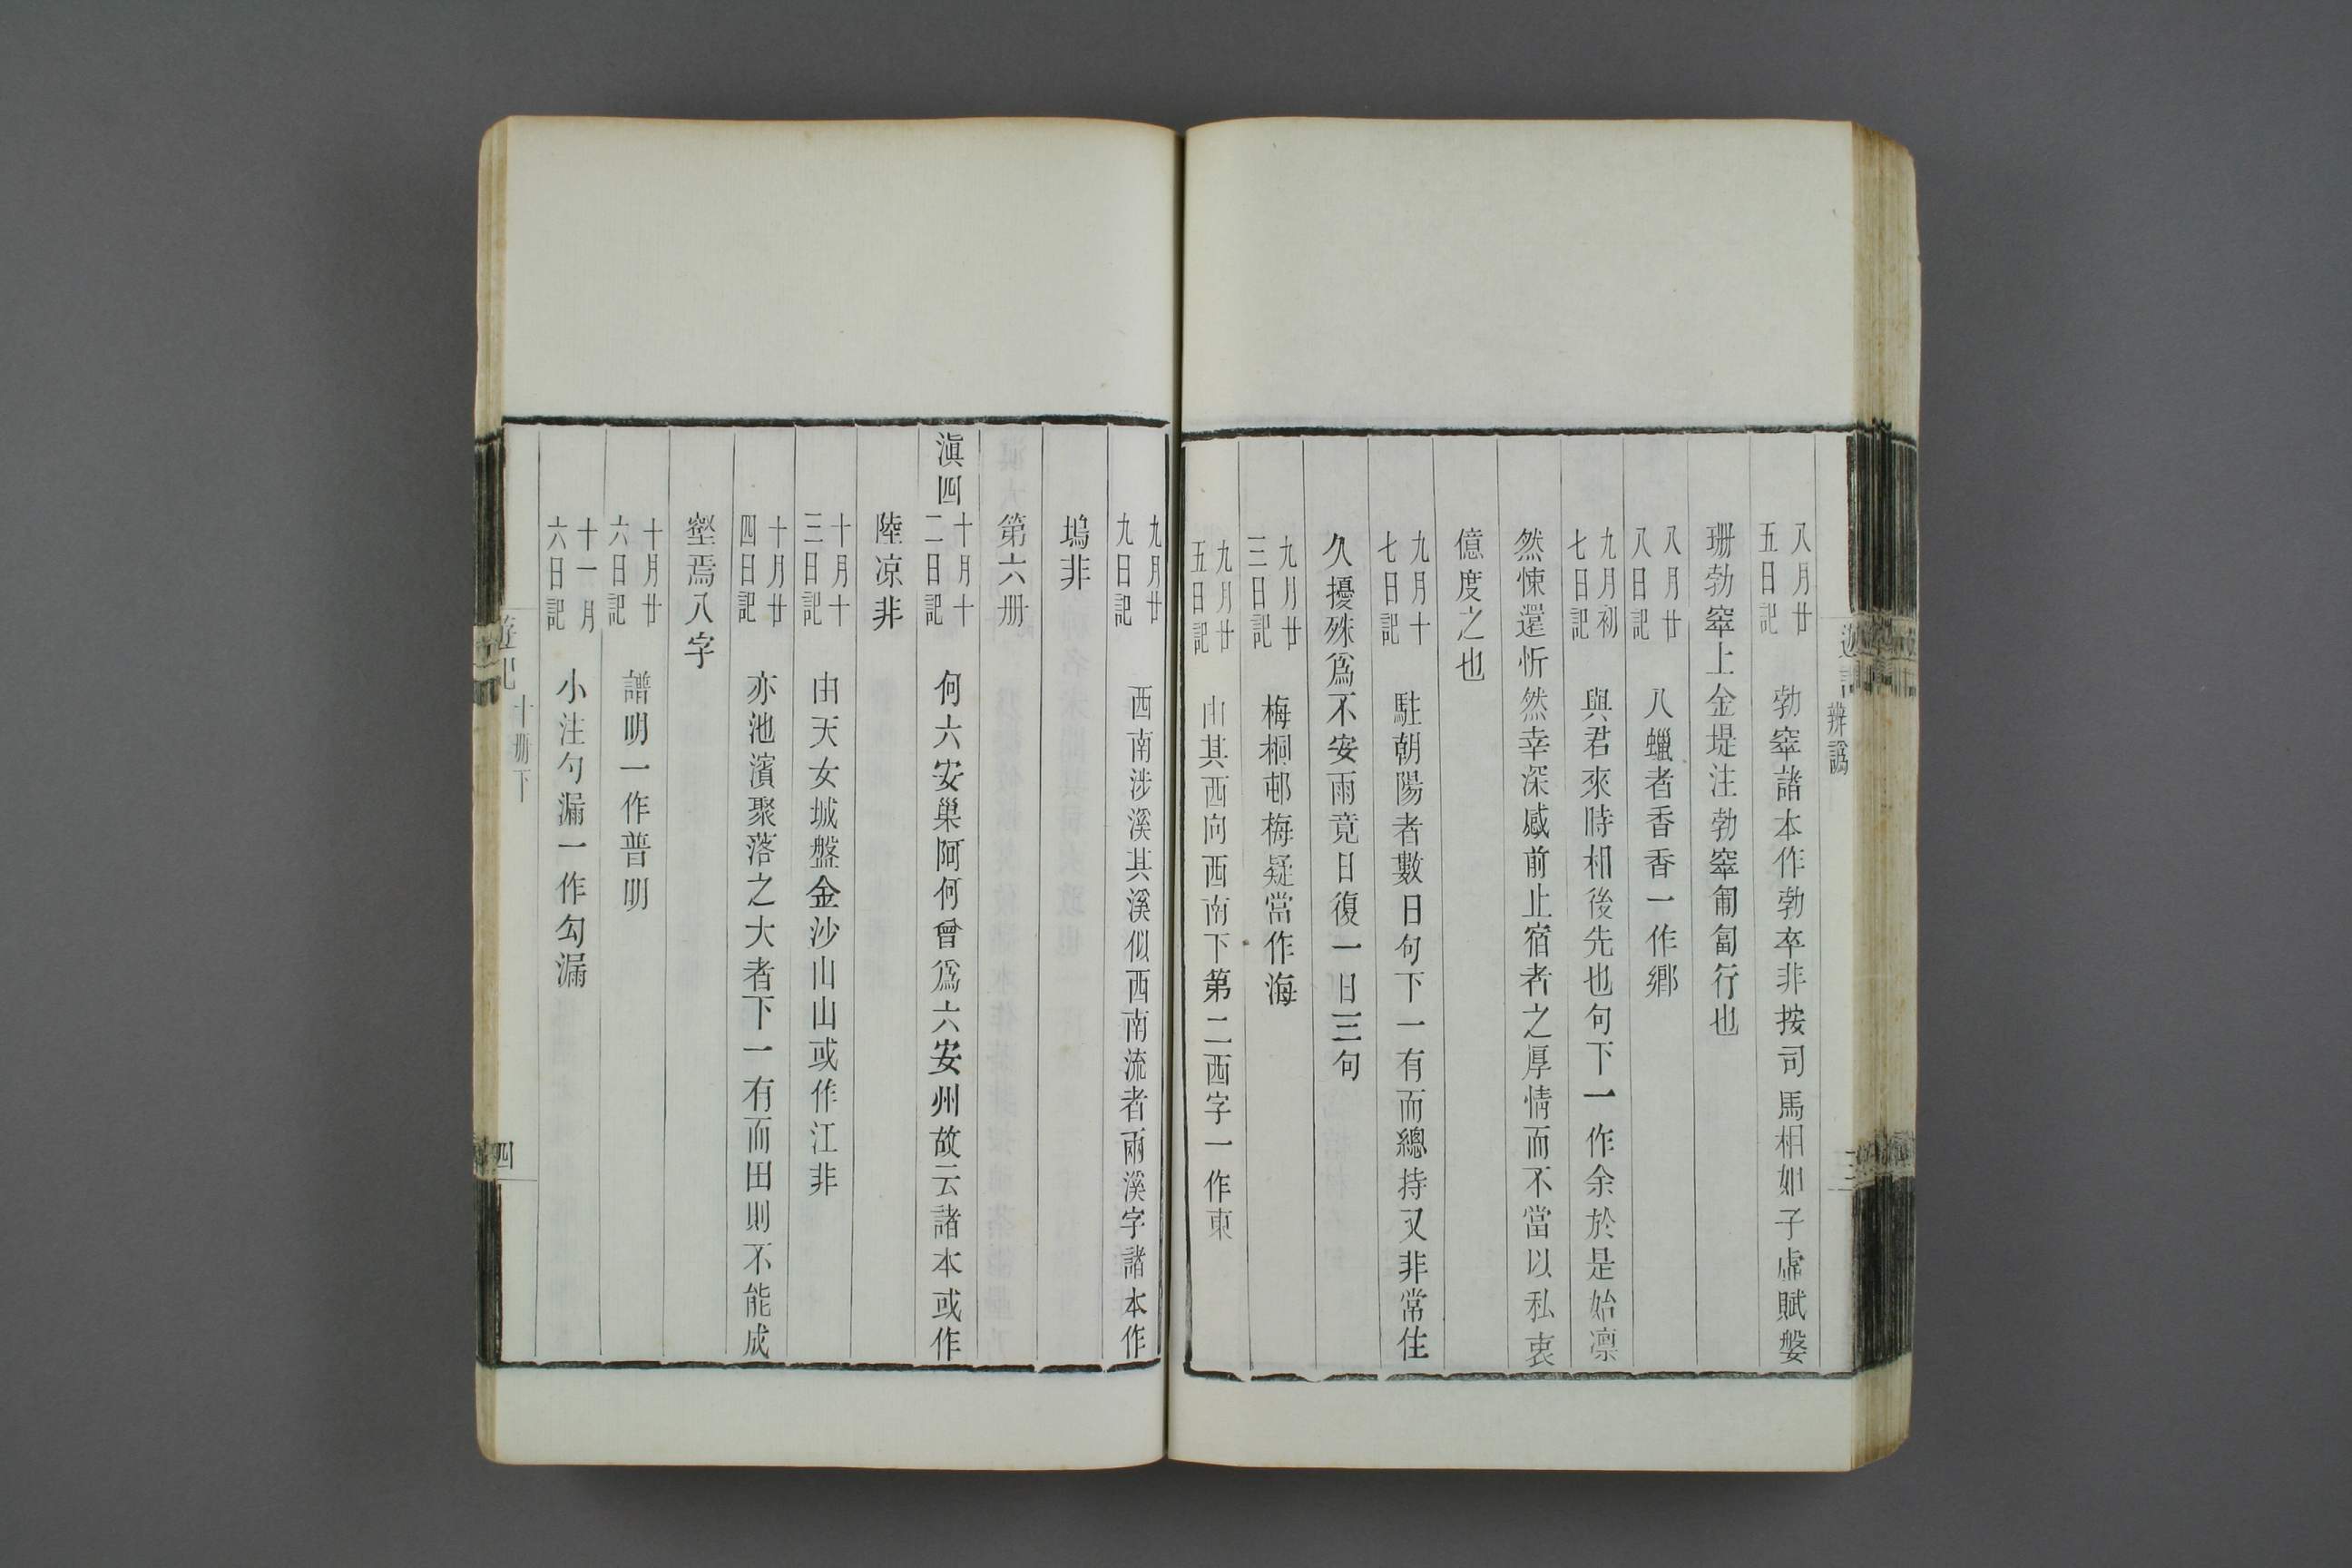 八月廿五日記　勃窣諸本作勃卒非按司馬相如子虛賦媻
珊勃窣上金堤注勃窣匍匐行也
八月廿八日記　八蠟者香香一作鄉
九月初七日記　與君來時相後先也句下一作余於是始凛
然悚還忻然幸深感前止宿者之厚情而不當以私衷
億度之也
九月十七日記　駐朝陽者數日句下一有而總持又非常住
久擾殊爲不安雨竟日復一日三句
九月廿三日記　梅桐邨梅疑當作海
九月廿五日記　由其西向西南下第二西字一作東
辨譌
三
九月廿九日記　西南涉溪其溪似西南流者兩溪字諸本作
塢非
第六册
滇四　十月十二日記　何六安巢阿何曾爲六安州故云諸本或作
陸凉非
十月十三日記　由天女城盤金沙山山或作江非
十月廿四日記　亦池濱聚落之大者下一有而田則不能成
壑焉八字
十月廿六日記　譜明一作普明
十一月六日記　小注勺漏一作勾漏
遊記　十册下　四